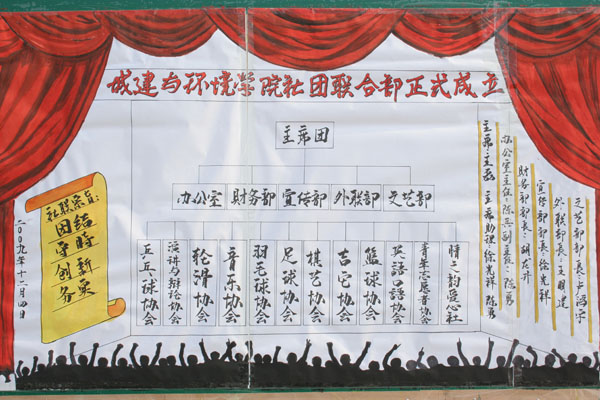 城建与环境学院社团联合部正式成立
主席团
办公室
财务部
宣传部
外联部
文艺部
乒乓球协会
演讲与辩论协会
轮滑协会
音乐协会
羽毛球协会
足球协会
棋艺协会
吉它协会
篮球协会
英语口语协会
青年志愿者协会
情之韵爱心社
社联宗旨:
团结
守時
创新
务实
二〇〇九年十二月四日
主席: 主席助理 徐光祥
办公室主任: 陈兵
财务部部长: 胡龙升
宣传部部长: 徐光祥
外联部长: 王月建
文艺部部长: